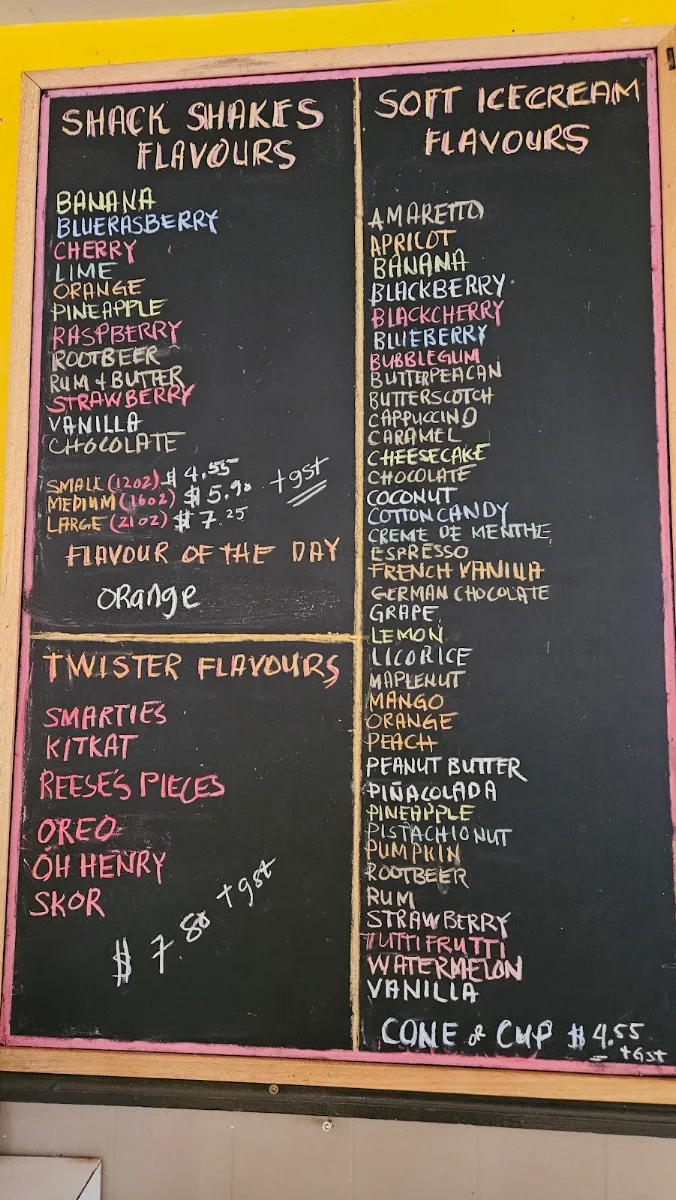 SHACK SHAKES
FLAVOURS
BANANA
BLUERASBERRY
CHERRY
LIME
ORANGE
PINEAPPLE
RASPBERRY
ROOTBEER
RUM & BUTTER
STRAWBERRY
VANILLA
CHOCOLATE
SMALL (12OZ) $4.55
MEDIUM (16OZ) $5.90
LARGE (21OZ) $7.25
+gst
FLAVOUR OF THE DAY
ORange
TWISTER FLAVOURS
SMARTIES
KITKAT
REESE'S PIECES
OREO
OH HENRY
SKOR
$7.80 +gst
SOFT ICECREAM
FLAVOURS
AMARETTO
APRICOT
BANANA
BLACKBERRY
BLACKCHERRY
BLUEBERRY
BUBBLEGUM
BUTTERPEACAN
BUTTERSCOTCH
CAPPUCCINO
CARAMEL
CHEESECAKE
CHOCOLATE
COCONUT
COTTON CANDY
CREME DE MENTHE
ESPRESSO
FRENCH VANILLA
GERMAN CHOCOLATE
GRAPE
LEMON
LICORICE
MAPLENUT
MANGO
ORANGE
PEACH
PEANUT BUTTER
PIÑACOLADA
PINEAPPLE
PISTACHIO NUT
PUMPKIN
ROOTBEER
RUM
STRAWBERRY
TUTTI FRUTTI
WATERMELON
VANILLA
CONE or CUP $4.55
+GST